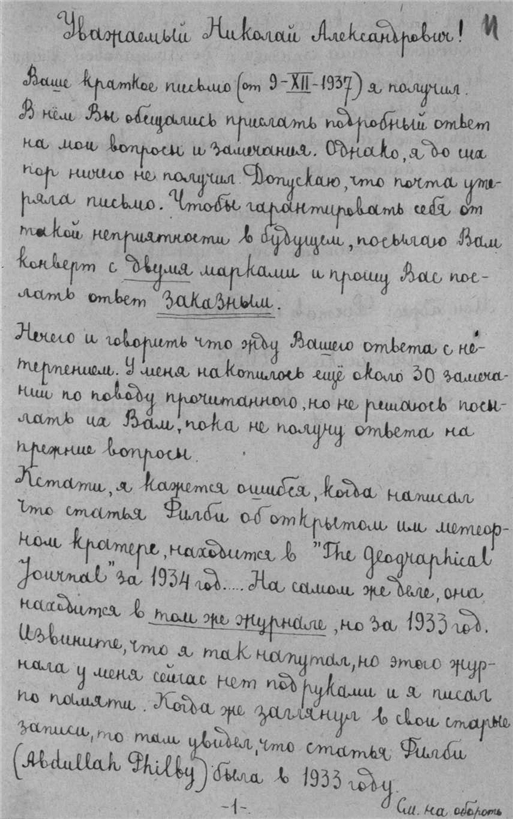 Уважаемый Николай Александрович!
Ваше краткое письмо (от 9-XII-1937) я получил.
В нём Вы обещались прислать подробный ответ
на мои вопросы и замечания. Однако, я до сих
пор ничего не получил. Допускаю, что почта уте-
ряла письмо. Чтобы гарантировать себя от
такой неприятности в будущем, посылаю Вам
конверт с двумя марками и прошу Вас пос-
лать ответ заказным.
Нечего и говорить что жду Вашего ответа с не-
терпением. У меня накопилось ещё около 30 замеча-
ний по поводу прочитанного, но не решаюсь посы-
лать их Вам, пока не получу ответа на
прежние вопросы.
Кстати, я кажется ошибся, когда написал
что статья Филби об открытом им метеор-
ном кратере, находится в "The Geographical
Journal" за 1934 год.... На самом же деле, она
находится в том же журнале, но за 1933 год.
Извините, что я так напутал, но этого жур-
нала у меня сейчас нет под руками и я писал
по памяти. Когда же заглянул в свои старые
записи, то там увидел, что статья Филби
(Abdullah Philby) была в 1933 году.
-1-
См. на обороть